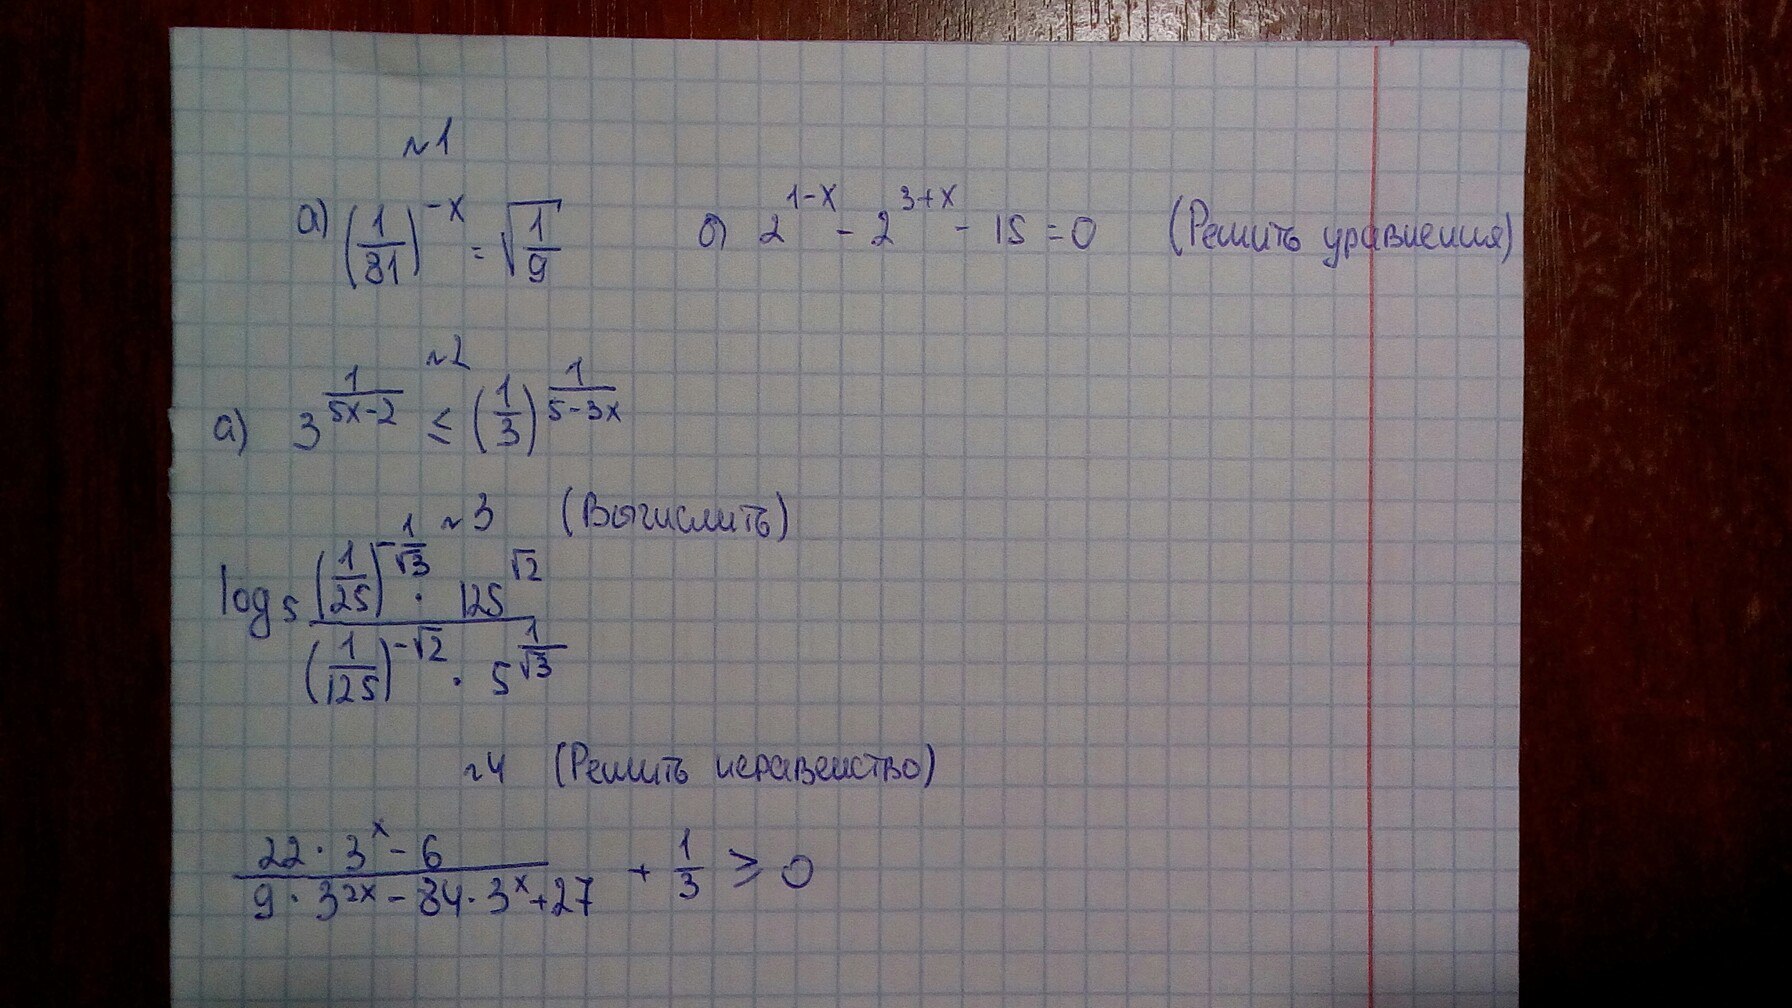 №1
а) (1/81)^{-x} = √(1/9)   б) 2^{1-x} - 2^{3+x} - 15 = 0   (Решить уравнения)
№2
а) 3^{1/(5x-2)} ≤ (1/3)^{1/(5-3x)}
№3 (Вычислить)
log₅ ((1/25)^{-1/√3} · 125^{√2}) / ((1/125)^{-√2} · 5^{1/√3})
№4 (Решить неравенство)
(22 · 3^x - 6) / (9 · 3^{2x} - 84 · 3^x + 27) + 1/3 ≥ 0